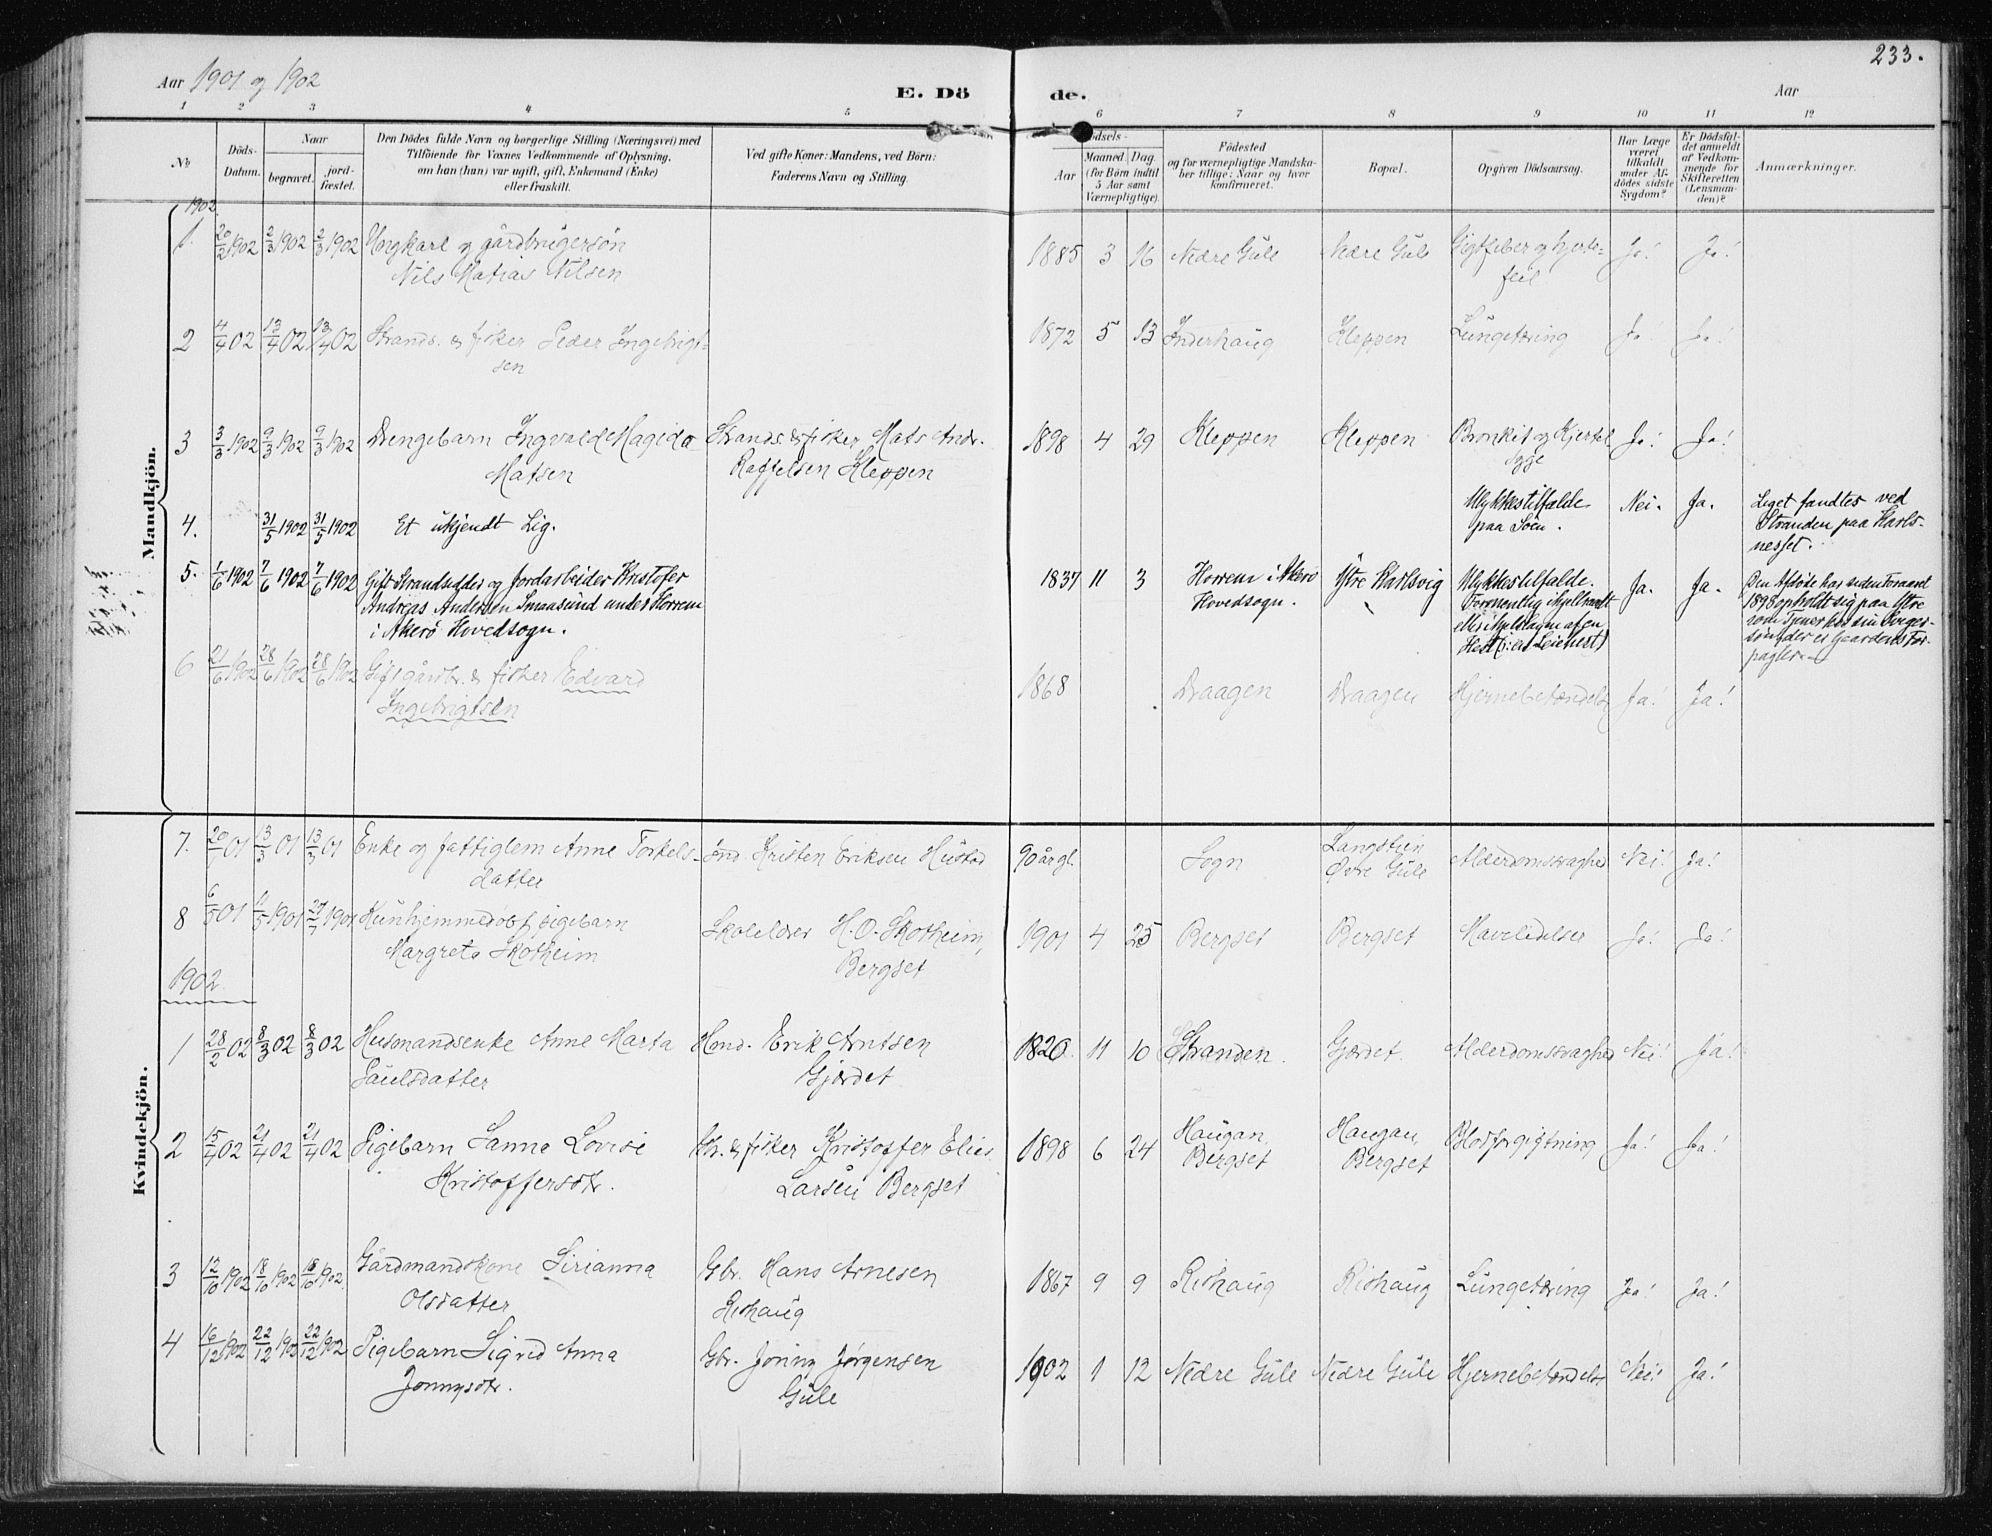 233.
Aar 1901 og 1902
E. Döde.
Aar
1 2 3 4 5 6 7 8 9 10 11 12
No
Döds-Datum.
Naar
begravet.
jord-fæstet.
Den Dödes fulde Navn og borgerlige Stilling (Næringsvei) med
Tilföiende for Voxnes Vedkommende af Oplysning,
om han (hun) var ugift, gift, Enkemand (Enke)
eller fraskilt.
Ved gifte Koner: Mandens, ved Börn:
Faderens Navn og Stilling.
Aar
Maaned Dag
(for Börn indtil
5 Aar samt
Værnepligtige).
Födested
og for værnepligtige Mandska-
ber tillige: Naar og hvor
konfirmeret.
Bopæl.
Opgiven Dödsaarsag.
Har Læge
været
tilkaldt
under Af-
dödes sidste
Sygdom?
Er Dödsfal-
det anmeldt
af Vedkom-
mende for
Skifteretten
(Lensman-
den)?
Anmærkninger.
Mandkjön.
1902
1. 20/2 1902 2/3 1902 2/3 1902 Ungkarl og gårdbrugersøn
Nils Matias Nilsen
1885 3 16 Nedre Gule Nedre Gule Gigtfeber og hjerte-
feil Ja! Ja!
2 4/4 02 13/4 02 13/4 02 Strands. & fisker Peder Ingebrigt-
sen
1872 5 13 Inderhaug Kleppen Lungetæring Ja! Ja!
3 3/3 1902 9/3 1902 9/3 1902 Drengebarn Ingvald Magido
Matsen
Strands. & fisker Mats Andr.
Raffelsen Kleppen
1898 4 29 Kleppen Kleppen Bronkit og Kjertel
syge Ja! Ja!
4. 31/5 1902 31/5 1902 Et ukjendt Lig.
Ulykkestilfælde
paa Söen. Nei. Ja.
Liget fandtes ved
Stranden paa Karls-
nesset.
5. 1/6 1902 7/6 1902 7/6 1902 Gift Strandsidder og Jordarbeider Kristofer
Andreas Andersen Smaasund under Horrem
i Akerö Hovedsogn.
1837 11 3 Horrem i Akerö
Hovedsogn. Ytre Karlsvig
Ulykkestilfælde.
Formentlig ihjelbraadt
eller ihjelslagen af en
Hest Ja. Ja.
Den Afdöde har siden Foraaret
1898 opholdt sig paa Ytre
som Tjener hos sin Sviger-
sön, der er Gaardens For-
pagter.
6 21/6 1902 28/6 1902 28/6 1902 Gift gårdbr. & fisker Edvard
Ingebrigtsen
1868 Draagen Draagen Hjernebetændelse Ja! Ja!
Kvindekjön.
7. 01 13/3 01 13/3 01 Enke og fattiglem Anne Torkels-
datter
Ind. Kristen Eriksen Hustad
90 år gl. Sogn Langstien
Øvre Gule Alderdomssvaghed Nei! Ja!
8 6/5 01 1901 1901 Kun hjemmedøbt pigebarn
Margreta Skotheim
Skolelærer H. O. Skotheim,
Bergset
1901 4 25 Bergset Bergset Mavelidelser Ja! Ja!
1902
1 28/2 02 8/3 02 8/3 02 Husmandsenke Anne Marta
Paulsdatter
Hmd. Erik Arntsen
Gjerdet
1820. 11 10 Stranden. Gjerdet. Alderdomssvaghed Nei! Ja!
2 15/4 02 21/4 02 21/4 02 Pigebarn Sanna Lovise
Kristoffersdtr.
Str. & fisker Kristoffer Elias
Larsen Bergset
1898 6 24 Haugan,
Bergset Haugan,
Bergset Blodforgigtning Ja! Ja!
3 12/10 1902 18/10 1902 18/10 1902. Gårdmandskone Sirianna
Olsdatter
Gbr. Hans Arnesen
Rishaug
1867 9 9 Rishaug Rishaug Lungetæring Ja! Ja!
4 16/12 1902 22/12 1902 22/12 1902 Pigebarn Sigrid Anna
Jonnysdtr.
Gbr. Jonny Jørgensen
Gule
1902 1 12 Nedre Gule Nedre Gule Hjernebetændelse Nei! Ja!